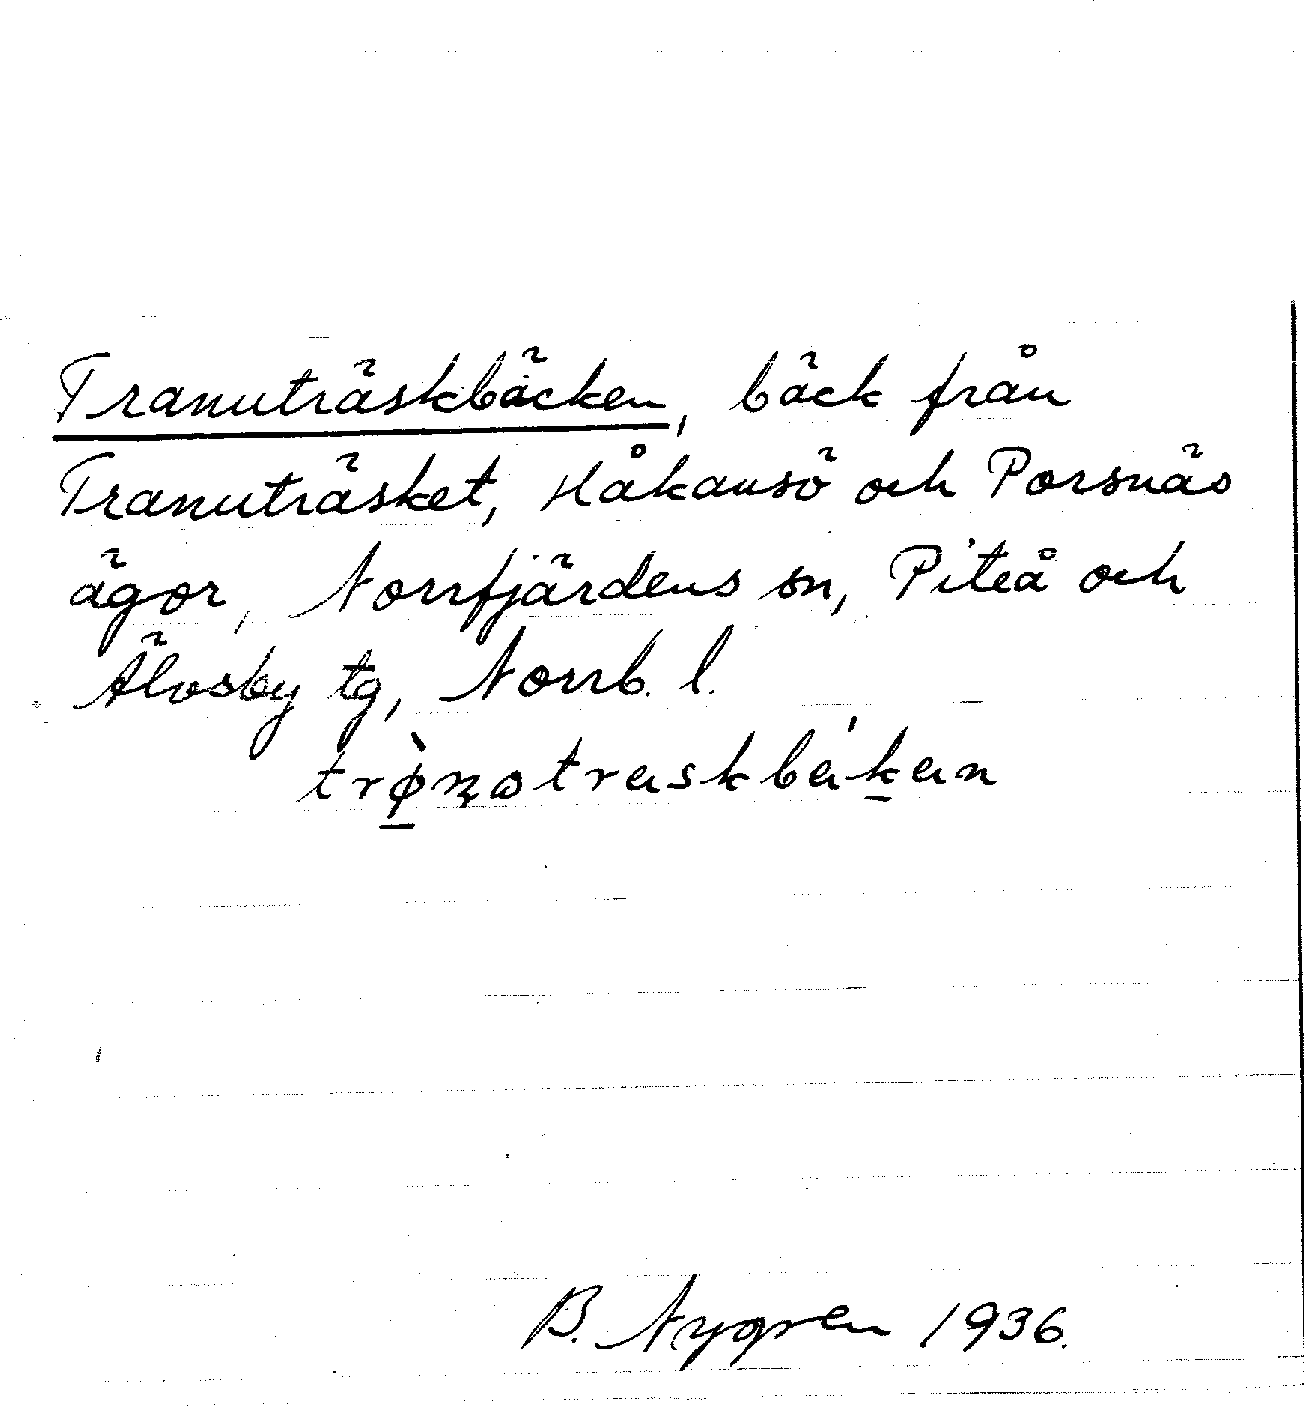 Tranuträskbäcken, bäck från
Tranuträsket, Håkansö och Porsnäs
ägor, Norrfjärdens sn, Piteå och
Älvsby tg, Norrb. l.
B. Nygren 1936.